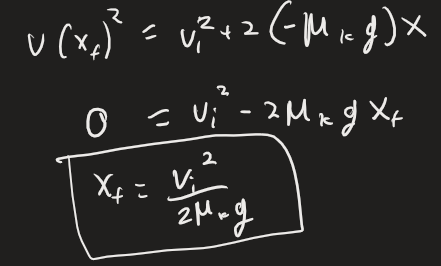 v(x_f)² = v_i² + 2(-μ_k g)x
0 = v_i² - 2μ_k g x_f
x_f = v_i² / 2μ_k g